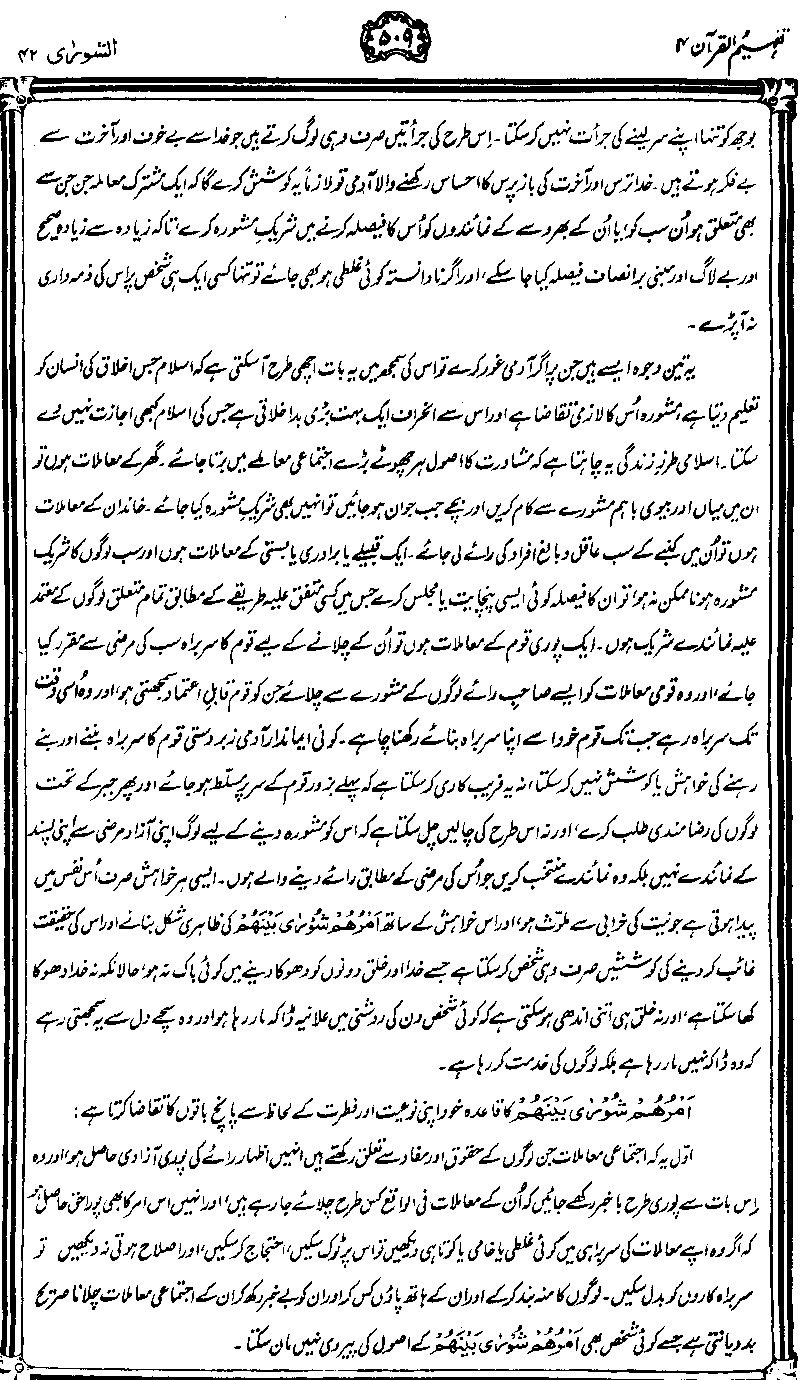 تفہیم القرآن ۴
۵۰۹
الشوریٰ ۴۲
بوجھ کو تنہا اپنے سر لینے کی جرأت نہیں کر سکتا۔ اِس طرح کی جرأتیں صرف وہی لوگ کرتے ہیں جو خدا سے بے خوف اور آخرت سے
بے فکر ہوتے ہیں۔ خدا ترس اور آخرت کی باز پرس کا احساس رکھنے والا آدمی تو لازماً یہ کوشش کرے گا کہ ایک مشترک معاملہ جن جن سے
بھی متعلق ہو اُن سب کو، یا اُن کے بھروسے کے نمائندوں کو اُس کا فیصلہ کرنے میں شریکِ مشورہ کرے، تاکہ زیادہ سے زیادہ صحیح
اور بے لاگ اور مبنی بر انصاف فیصلہ کیا جا سکے، اور اگر نادانستہ کوئی غلطی ہو بھی جائے تو تنہا کسی ایک ہی شخص پر اس کی ذمہ داری
نہ آ پڑے۔
یہ تین وجوہ ایسے ہیں جن پر اگر آدمی غور کرے تو اس کی سمجھ میں یہ بات اچھی طرح آ سکتی ہے کہ اسلام جس اخلاق کی انسان کو
تعلیم دیتا ہے، مشورہ اُس کا لازمی تقاضا ہے اور اس سے انحراف ایک بہت بڑی بداخلاقی ہے جس کی اسلام کبھی اجازت نہیں دے
سکتا۔ اسلامی طرزِ زندگی یہ چاہتا ہے کہ مشاورت کا اصول ہر چھوٹے بڑے اجتماعی معاملے میں برتا جائے۔ گھر کے معاملات ہوں تو
ان میں میاں اور بیوی باہم مشورے سے کام کریں اور بچے جب جوان ہو جائیں تو انہیں بھی شریکِ مشورہ کیا جائے۔ خاندان کے معاملات
ہوں تو اُن میں کنبے کے سب عاقل و بالغ افراد کی رائے لی جائے۔ ایک قبیلے یا برادری یا بستی کے معاملات ہوں اور سب لوگوں کا شریک
مشورہ ہونا ممکن نہ ہو، تو ان کا فیصلہ کوئی ایسی پنچایت یا مجلس کرے جس میں کسی متفق علیہ طریقے کے مطابق تمام متعلق لوگوں کے معتمد
علیہ نمائندے شریک ہوں۔ ایک پوری قوم کے معاملات ہوں تو اُن کے چلانے کے لیے قوم کا سربراہ سب کی مرضی سے مقرر کیا
جائے، اور وہ قومی معاملات کو ایسے صاحبِ رائے لوگوں کے مشورے سے چلائے جن کو قوم قابلِ اعتماد سمجھتی ہو، اور وہ اُسی وقت
تک سربراہ رہے جب تک قوم خود اسے اپنا سربراہ بنائے رکھنا چاہے۔ کوئی ایماندار آدمی زبردستی قوم کا سربراہ بننے اور بنے
رہنے کی خواہش یا کوشش نہیں کر سکتا، نہ یہ فریب کاری کر سکتا ہے کہ پہلے بزور قوم کے سر پر مسلط ہو جائے اور پھر جبر کے تحت
لوگوں کی رضامندی طلب کرے، اور نہ اس طرح کی چالیں چل سکتا ہے کہ اس کو مشورہ دینے کے لیے لوگ اپنی آزاد مرضی سے اپنی پسند
کے نمائندے نہیں بلکہ وہ نمائندے منتخب کریں جو اُس کی مرضی کے مطابق رائے دینے والے ہوں۔ ایسی ہر خواہش صرف اُس نفس میں
پیدا ہوتی ہے جو نیت کی خرابی سے ملوث ہو، اور اس خواہش کے ساتھ اَمْرُهُمْ شُوْرٰی بَیْنَهُمْ کی ظاہری شکل بنانے اور اس کی حقیقت
غائب کر دینے کی کوششیں صرف وہی شخص کر سکتا ہے جسے خدا اور خلق دونوں کو دھوکا دینے میں کوئی باک نہ ہو، حالانکہ نہ خدا دھوکا
کھا سکتا ہے، اور نہ خلق ہی اتنی اندھی ہو سکتی ہے کہ کوئی شخص دن کی روشنی میں علانیہ ڈاکہ مار رہا ہو اور وہ سچے دل سے یہ سمجھتی رہے
کہ وہ ڈاکہ نہیں مار رہا ہے بلکہ لوگوں کی خدمت کر رہا ہے۔
اَمْرُهُمْ شُوْرٰی بَیْنَهُمْ کا قاعدہ خود اپنی نوعیت اور فطرت کے لحاظ سے پانچ باتوں کا تقاضا کرتا ہے:
اوّل یہ کہ اجتماعی معاملات جن لوگوں کے حقوق اور مفاد سے تعلق رکھتے ہیں انہیں اظہارِ رائے کی پوری آزادی حاصل ہو، اور وہ
اِس بات سے پوری طرح باخبر رکھے جائیں کہ اُن کے معاملات فی الواقع کس طرح چلائے جا رہے ہیں، اور انہیں اس امر کا بھی پورا حق حاصل ہو
کہ اگر وہ اپنے معاملات کی سربراہی میں کوئی غلطی یا خامی یا کوتاہی دیکھیں تو اس پر ٹوک سکیں، احتجاج کر سکیں، اور اصلاح ہوتی نہ دیکھیں تو
سربراہ کاروں کو بدل سکیں۔ لوگوں کا منہ بند کر کے اور ان کے ہاتھ پاؤں کس کر اور ان کو بے خبر رکھ کر ان کے اجتماعی معاملات چلانا صریح
بددیانتی ہے جسے کوئی شخص بھی اَمْرُهُمْ شُوْرٰی بَیْنَهُمْ کے اصول کی پیروی نہیں مان سکتا۔